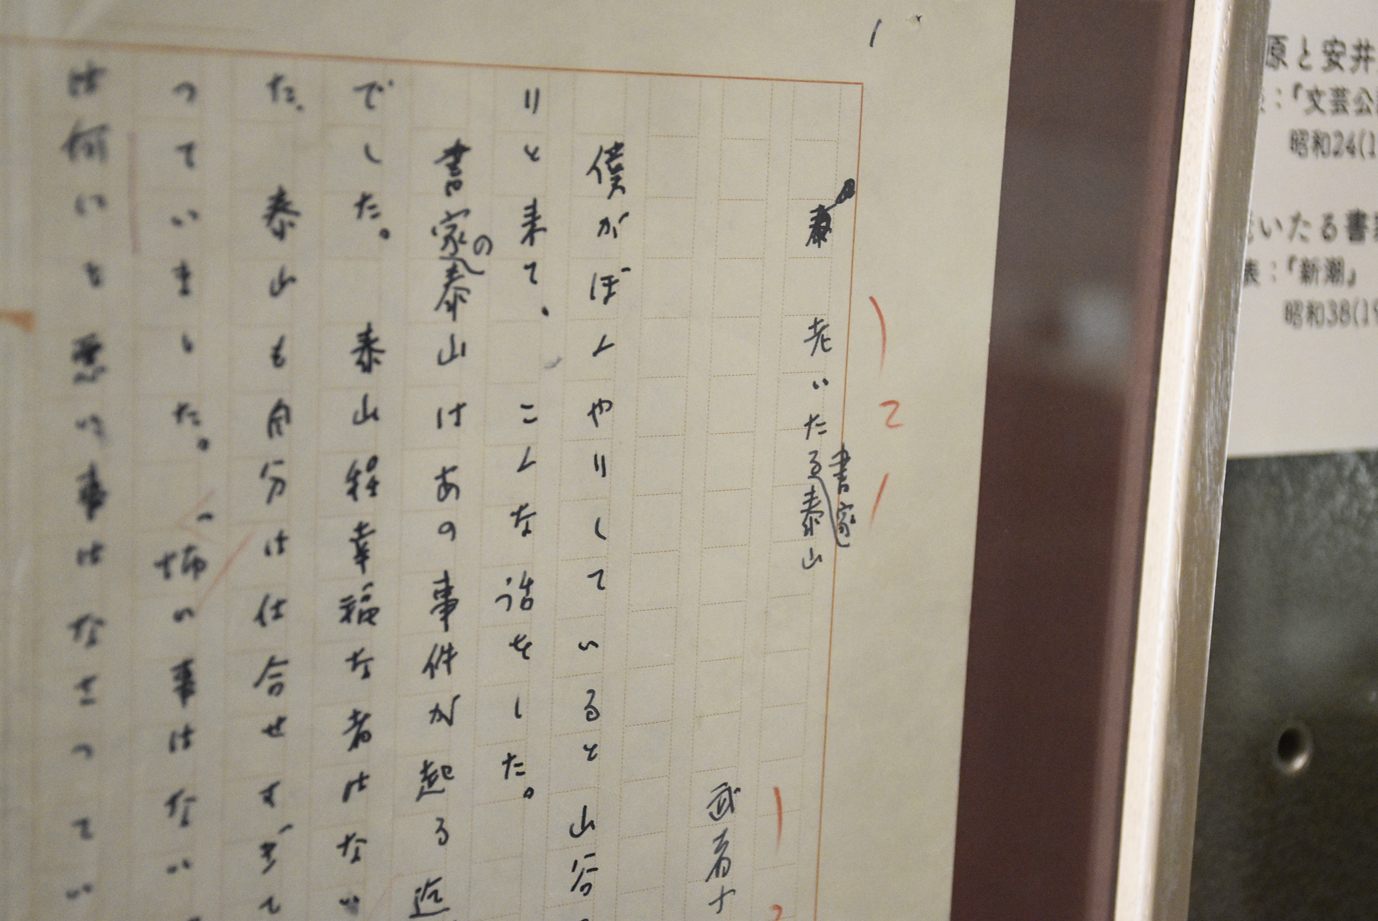 1
老いたる書家泰山
2
武者
僕がぼんやりしていると山谷
りと来て、こんな話をした。
書家の泰山はあの事件が起る迄
でした。泰山程幸福な者はない
た、泰山も自分は仕合せすぎて
っていました。怖の事はない
は何にも悪い事はなさってい
原と安井
：『文芸公
昭和24(1
いたる書
表：『新潮』
昭和38(19